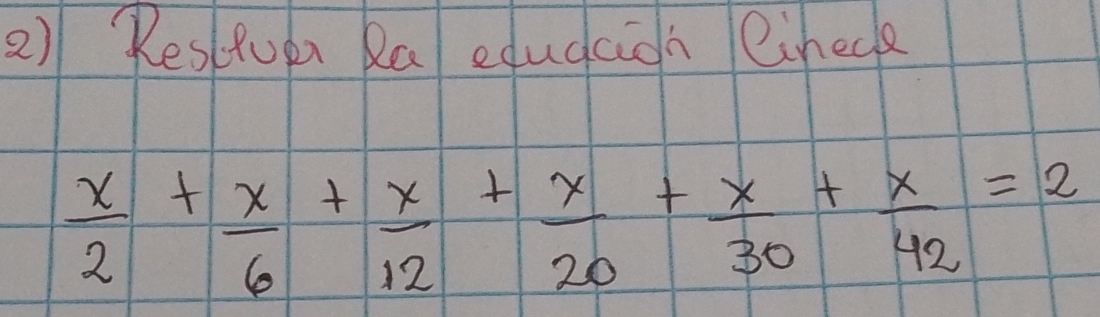 2) Resolver la ecuación lineal
x/2 + x/6 + x/12 + x/20 + x/30 + x/42 = 2